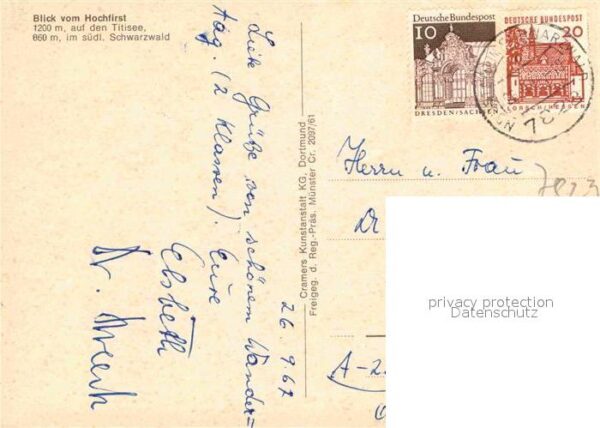 Blick vom Hochfirst
1200 m, auf den Titisee,
860 m, im südl. Schwarzwald
26.9.67
Grüße von schönem Wander=
tag. (2 Klassen). Eure
Elsbeth
Cramers Kunstanstalt KG. Dortmund
Freigeg. d. Reg.-Präs. Münster Cr. 2097/61
Deutsche Bundespost
10
DRESDEN/SACHSEN
DEUTSCHE BUNDESPOST
20
LORSCH/HESSEN
Herrn u. Frau
Dr
A-2
privacy protection
Datenschutz